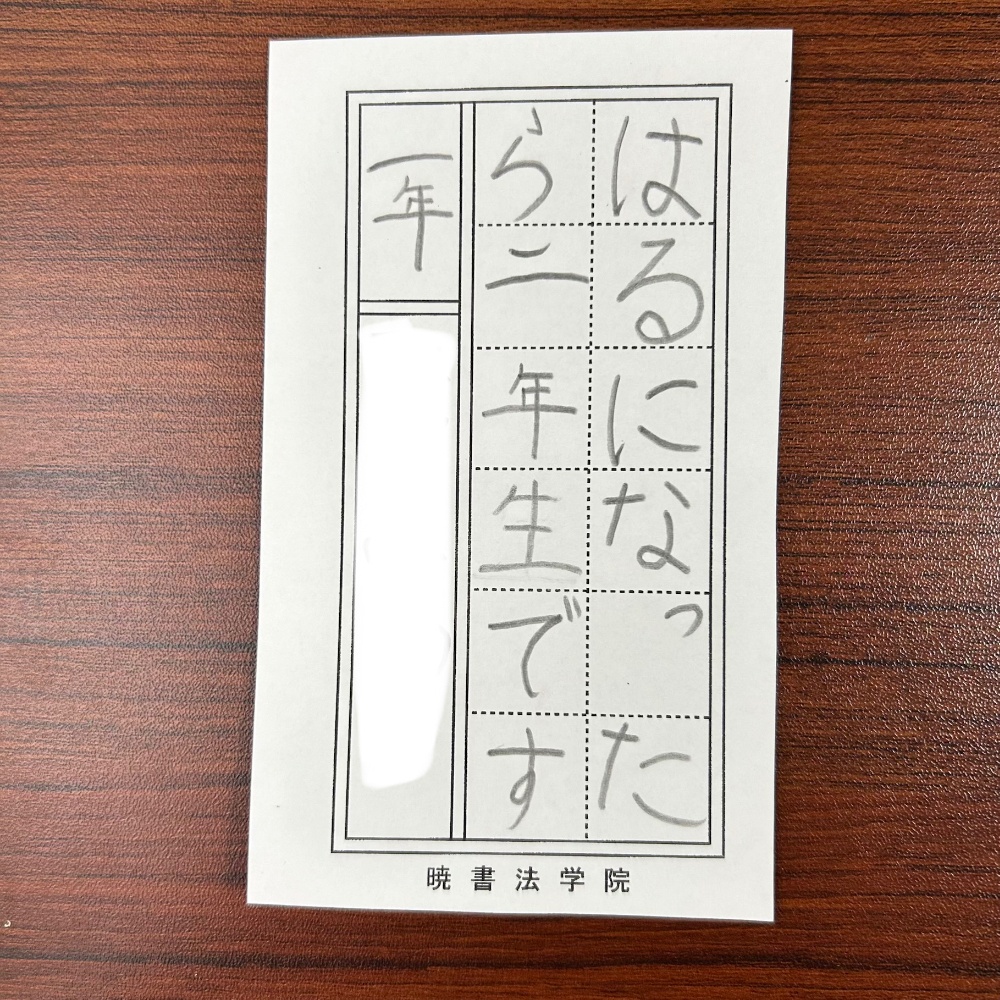 はるになった
ら二年生です
一年
暁書法学院